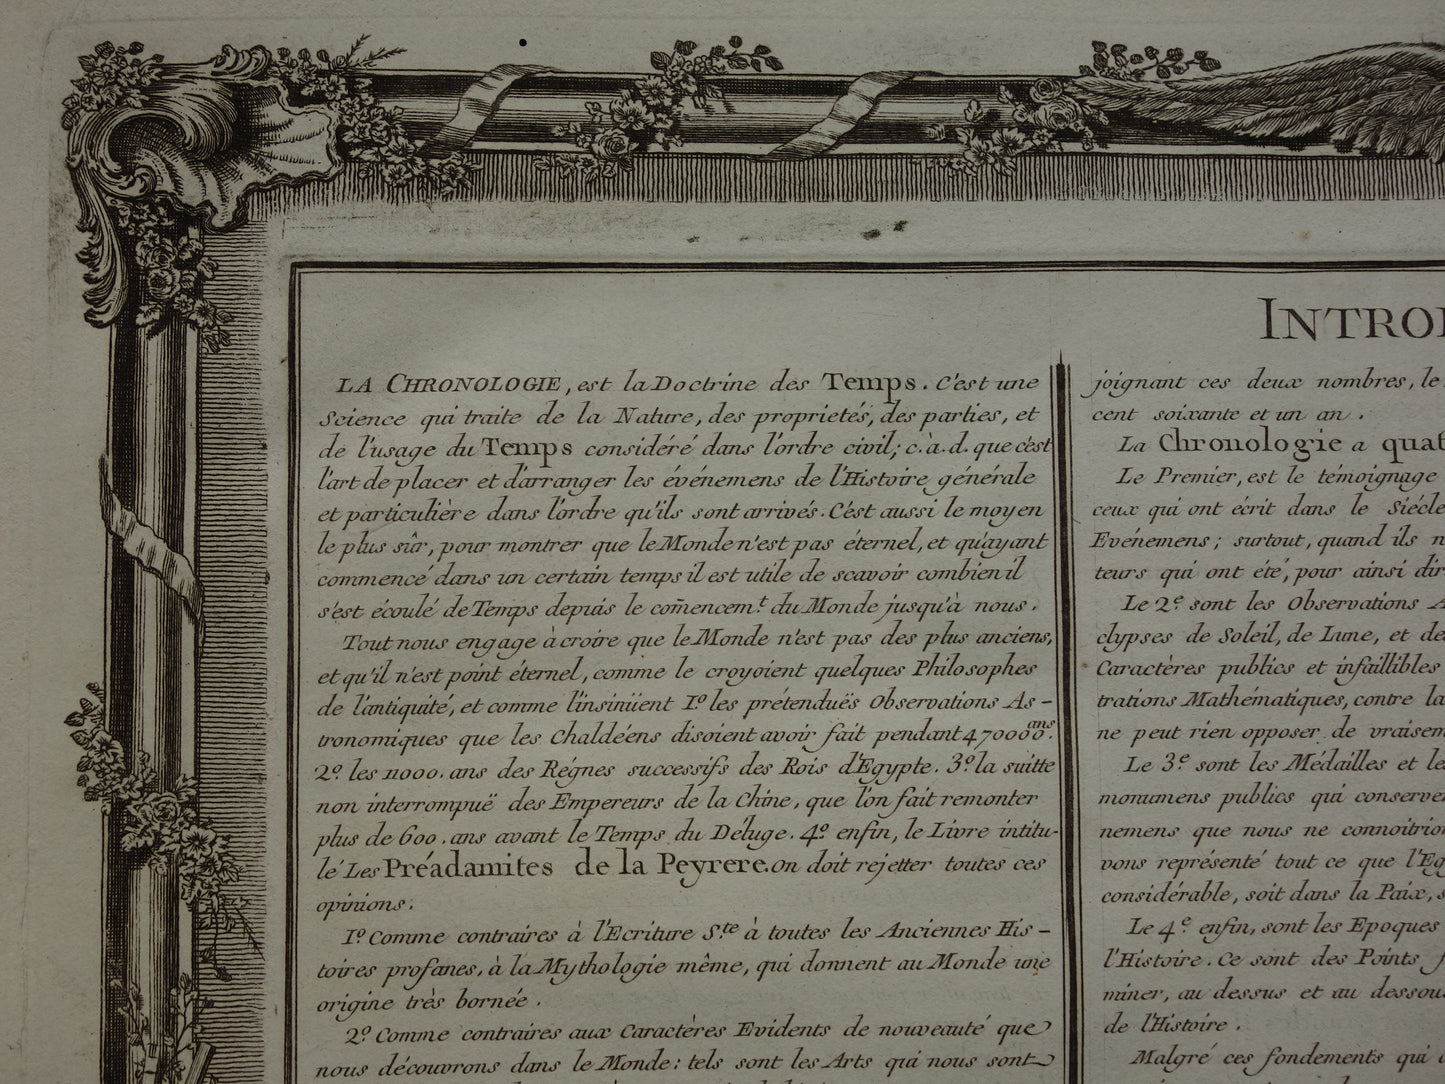 INTRO
LA CHRONOLOGIE, est la Doctrine des Temps. C'est une
Science qui traite de la Nature, des proprietés, des parties, et
de l'usage du Temps considéré dans l'ordre civil; c.à.d. que c'est
l'art de placer et d'arranger les événemens de l'Histoire générale
et particulière dans l'ordre qu'ils sont arrivés. C'est aussi le moyen
le plus sûr, pour montrer que le Monde n'est pas éternel, et qu'ayant
commencé dans un certain temps il est utile de scavoir combien il
s'est écoulé de Temps depuis le com̃encem.t du Monde jusqu'à nous.
Tout nous engage à croire que le Monde n'est pas des plus anciens,
et qu'il n'est point éternel, comme le croyoient quelques Philosophes
de l'antiquité, et comme l'insinüent 1º les prétenduës Observations As-
tronomiques que les Chaldéens disoient avoir fait pendant 470000 ans.
2º. les 11000. ans des Régnes successifs des Rois d'Egypte. 3º. la suitte
non interrompuë des Empereurs de la Chine, que l'on fait remonter
plus de 600. ans avant le Temps du Déluge. 4º. enfin, le Livre intitu-
lé Les Préadamites de la Peyrere. On doit rejetter toutes ces
opinions.
1º. Comme contraires à l'Ecriture S.te à toutes les Anciennes His-
toires profanes, à la Mythologie même, qui donnent au Monde une
origine très bornée.
2º. Comme contraires aux Caractères Evidents de nouveauté que
nous découvrons dans le Monde: tels sont les Arts qui nous sont
joignant ces deux nombres, le
cent soixante et un an.
La Chronologie a quat
Le Premier, est le témoignage
ceux qui ont écrit dans le Siécle
Evénemens; surtout, quand ils n
teurs qui ont été, pour ainsi dir
Le 2e sont les Observations A
clypses de Soleil, de Lune, et de
Caractères publics et infaillibles
trations Mathématiques, contre la
ne peut rien opposer de vraisem
Le 3e sont les Médailles et le
monumens publics qui conserve
nemens que nous ne connoitrio
vons représenté tout ce que l'Eg
considérable, soit dans la Paix, s
Le 4e. enfin, sont les Epoques
l'Histoire. Ce sont des Points f
miner, au dessus et au dessou
de l'Histoire.
Malgré ces fondements qui